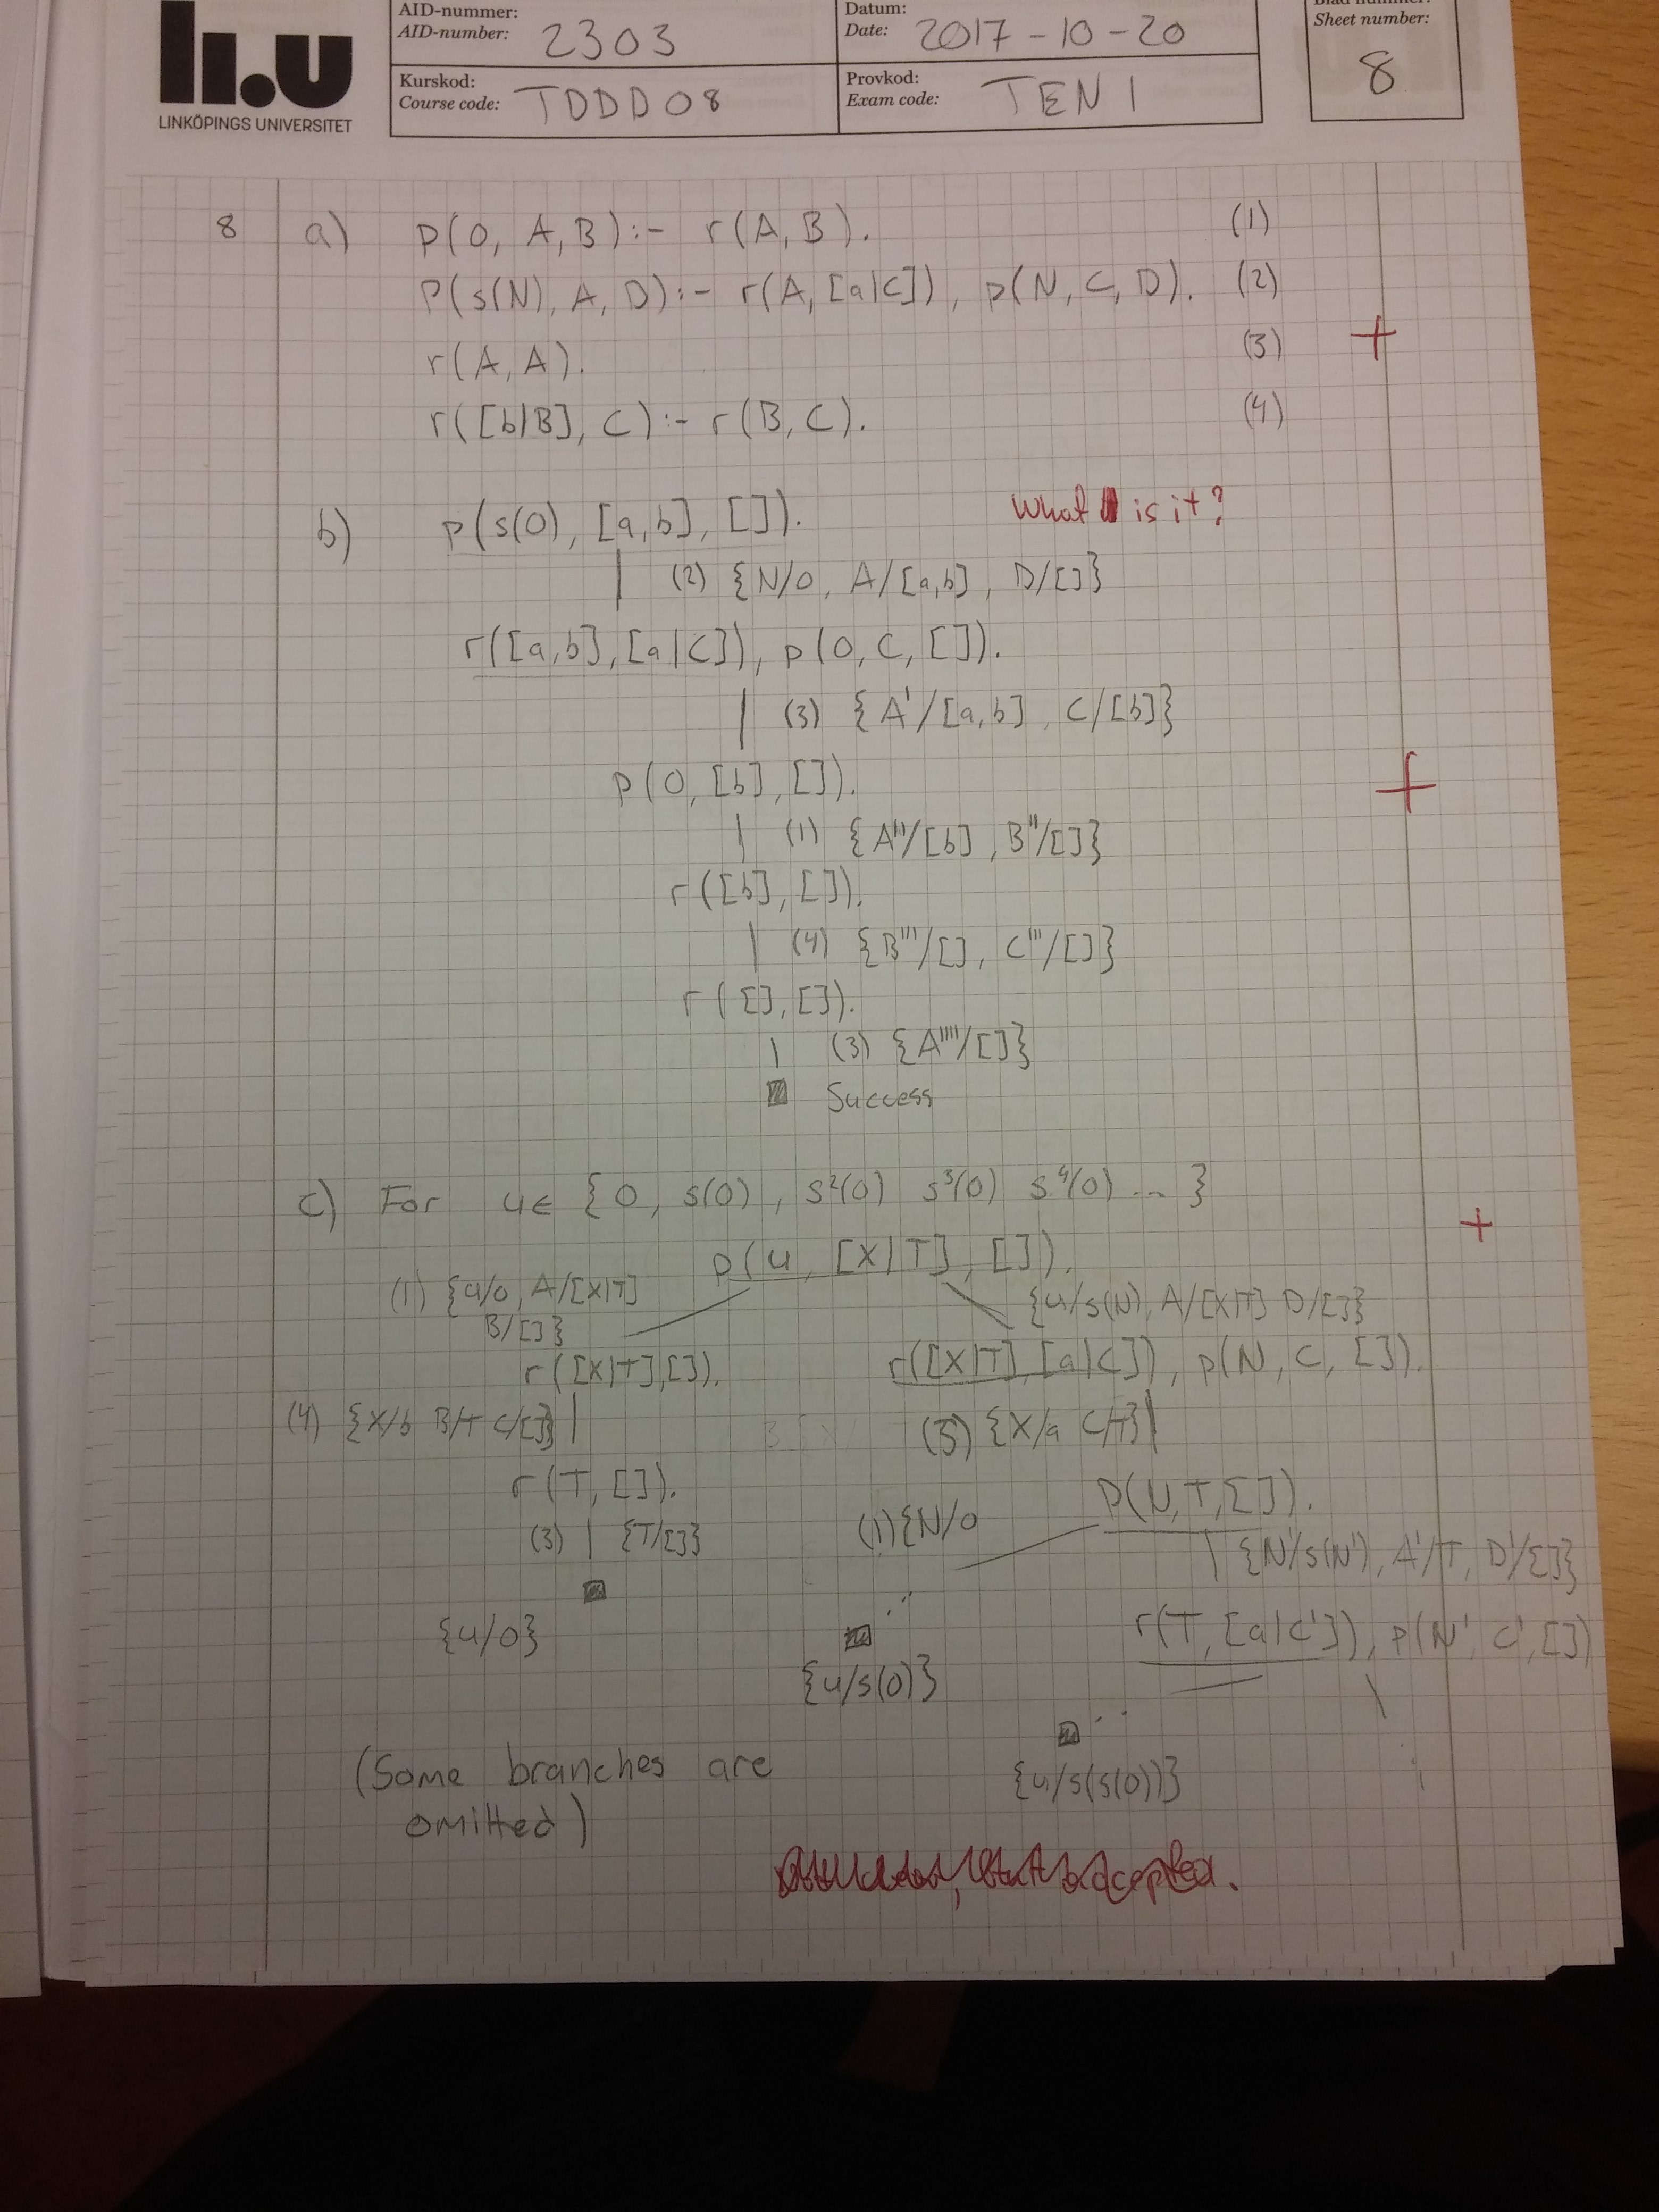 AID-nummer:
AID-number: 2303
Datum:
Date: 2017-10-20
Sheet number:
8
Kurskod:
Course code: TDDD08
Provkod:
Exam code: TEN1
li.u
LINKÖPINGS UNIVERSITET
8 a) p(0, A, B) :- r(A, B). (1)
P(s(N), A, D) :- r(A, [a|C]), p(N, C, D). (2)
r(A, A). (3) +
r([b|B], C) :- r(B, C). (4)
What is it?
b) p(s(0), [a,b], []).
(2) {N/0, A/[a,b], D/[]}
r([a,b], [a|C]), p(0, C, []).
(3) {A'/[a,b] C/[b]}
p(0, [b], []). +
(1) {A''/[b], B''/[]}
r([b], []).
(4) {B'''/[], C'''/[]}
r([], []).
(3) {A''''/[]}
Success
c) For u∈ {0, s(0), s²(0) s³(0) s⁴(0) ... } +
p(u, [X|T], []).
(1) {u/0, A/[X|T]
B/[]}
{u/s(N), A/[X|T] D/[]}
r([X|T], []). r([X|T], [a|C]), p(N, C, []).
(4) {X/b B/T C/[]} (3) {X/a C/T}
r(T, []). P(N, T, []).
(3) {T/[]} (1) {N/0 {N'/s(N'), A'/T, D'/[]}
{u/0} r(T, [a|C']), p(N', C', [])
{u/s(0)}
(Some branches are
omitted)
{u/s(s(0))}